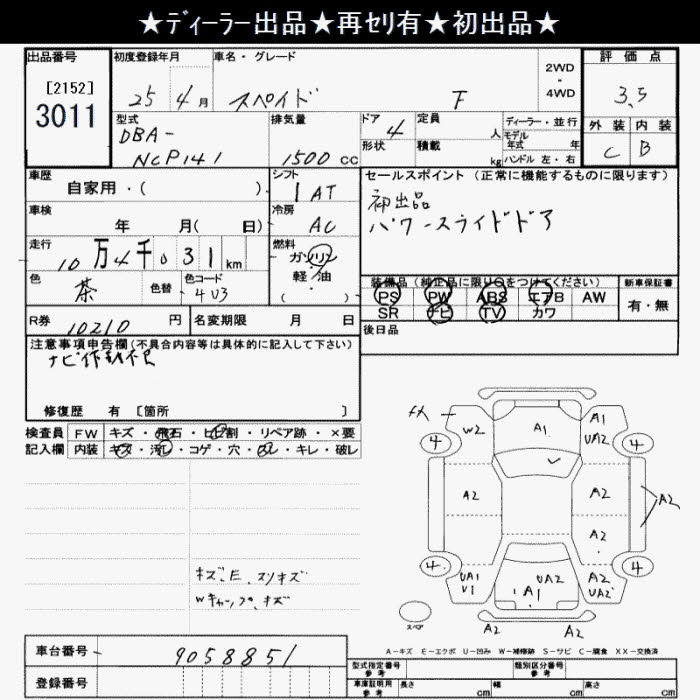 ★ディーラー出品★再セリ有★初出品★
出品番号
[2152]
3011
初度登録年月
25年 4月
車名・グレード
スペイド F
2WD
・
4WD
評価点
3.5
外装 内装
C B
型式
DBA-
NCP141
排気量
1500 CC
ドア
4
形状
定員
人
積載
kg
ディーラー・並行
モデル年式 年
ハンドル 左・右
車歴
自家用・( )
シフト
1AT
セールスポイント (正常に機能するものに限ります)
初出品
パワースライドドア
車検
年 月( 日)
冷房
AC
走行
10万4千031km
燃料
ガソリン
軽・油
( )
色
茶
色替
色コード
4U3
装備品 (純正品に限り○をつけてください)
新車保証書
PS PW ABS エアB AW
SR ナビ TV カワ
有・無
R券
10210円
名変期限 月 日
後日品
注意事項申告欄(不具合内容等は具体的に記入して下さい)
ナビ作動不良
修復歴 有 [箇所 ]
検査員 FW キズ・飛石・ヒビ割・リペア跡・×要
記入欄 内装 キズ・汚レ・コゲ・穴・ ・キレ・破レ
W2
A1
A1
UA2
4
4
A2
A2
A2
A2
4
4
UA1
U1
UA2
A1
A2
UA2
A2
A2
スペア
キズ、E、スリキズ
Wキャップ、キズ
A-キズ E-エクボ U-凹み W-補修跡 S-サビ C-腐食 XX-交換済
車台番号
9058851
登録番号
型式指定番号
参考
類別区分番号
参考
車庫証明用
参考
長さ cm
幅 cm
高さ cm